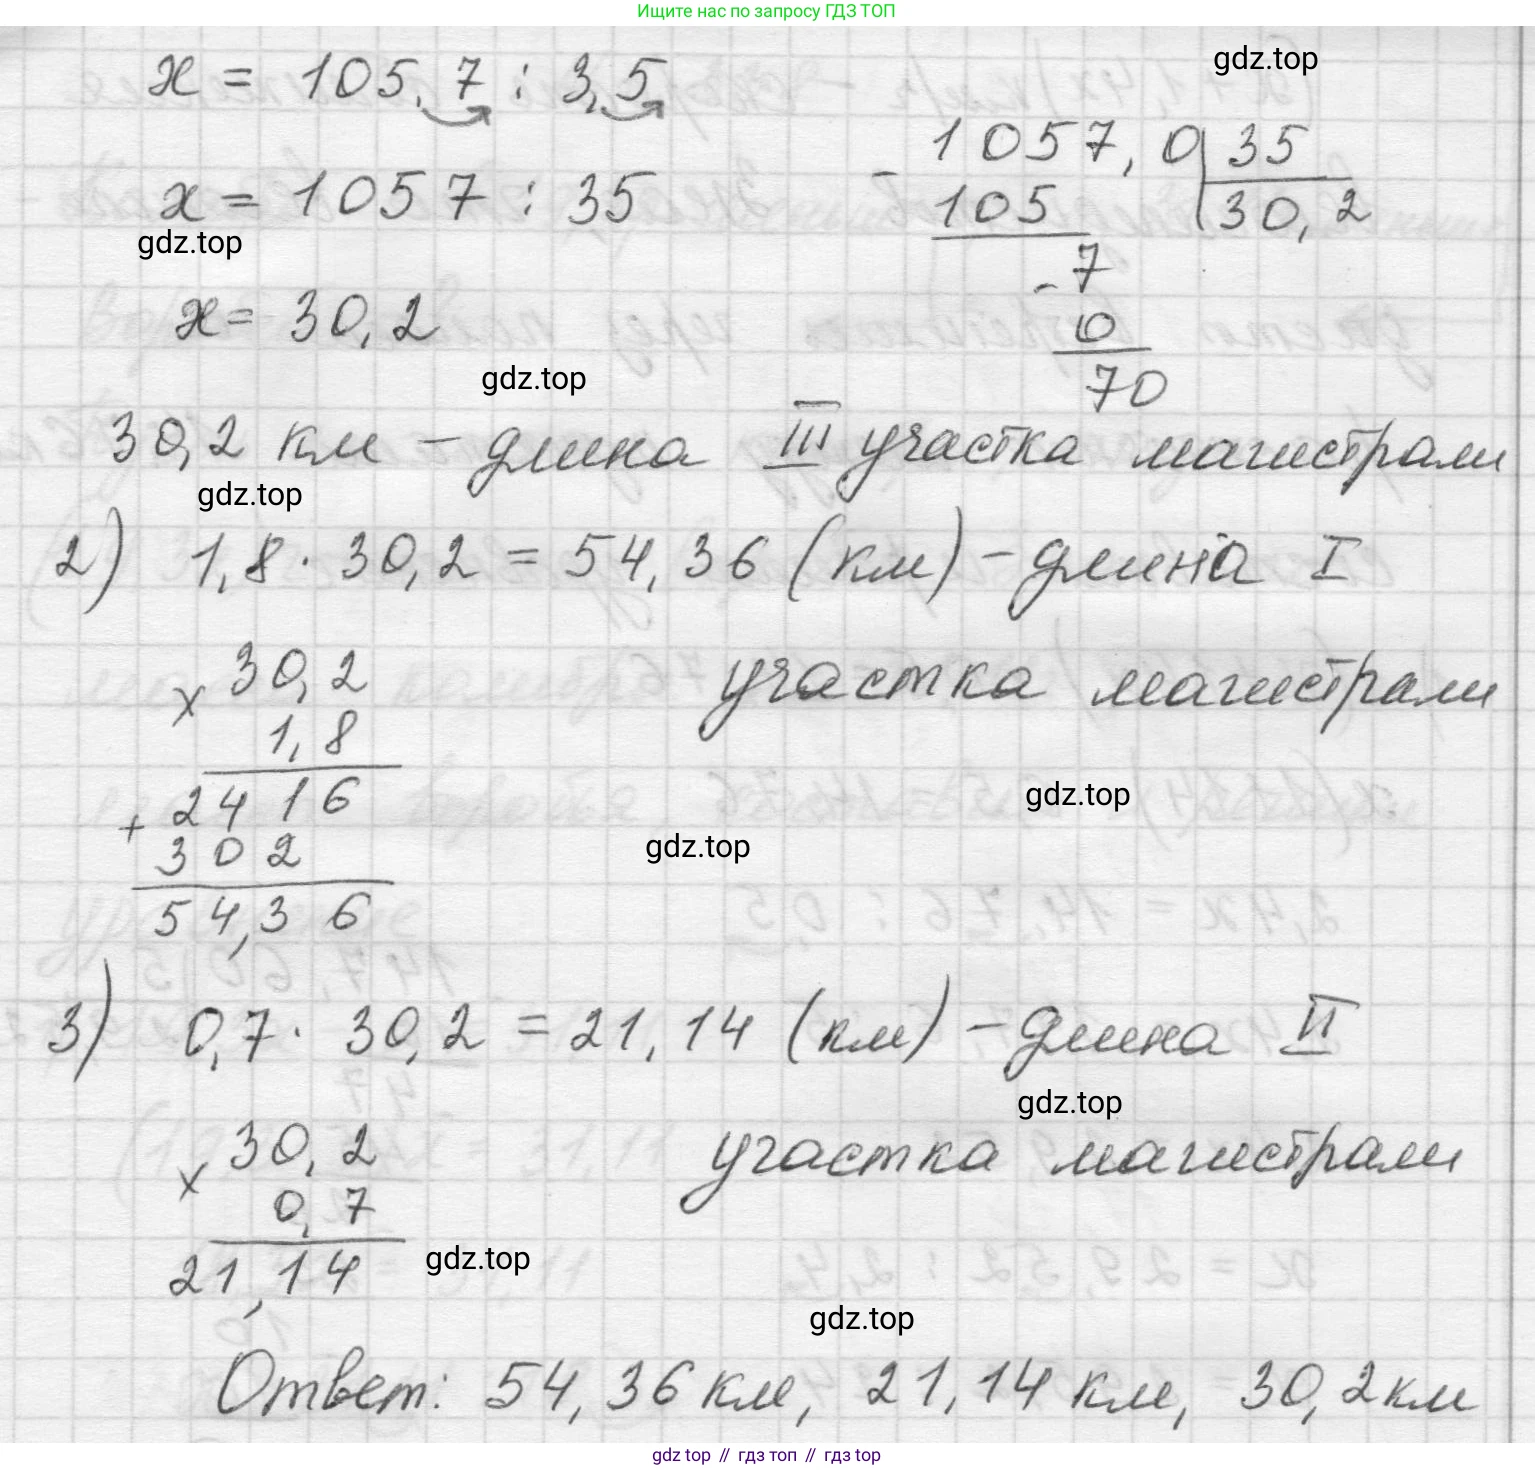 Ищите нас по запросу ГДЗ ТОП
x = 105,7 : 3,5
gdz.top
1057,0 | 35
- 105 30,2
x = 1057 : 35
gdz.top
- 7
0
70
x = 30,2
gdz.top
30,2 км – длина III участка магистрали
gdz.top
2) 1,8 · 30,2 = 54,36 (км) – длина I
участка магистрали
× 30,2
1,8
+ 2416
302
54,36
gdz.top
gdz.top
3) 0,7 · 30,2 = 21,14 (км) – длина II
gdz.top
участка магистрали
× 30,2
0,7
21,14
gdz.top
gdz.top
Ответ: 54,36 км, 21,14 км, 30,2 км
gdz top // гдз топ // гдз top